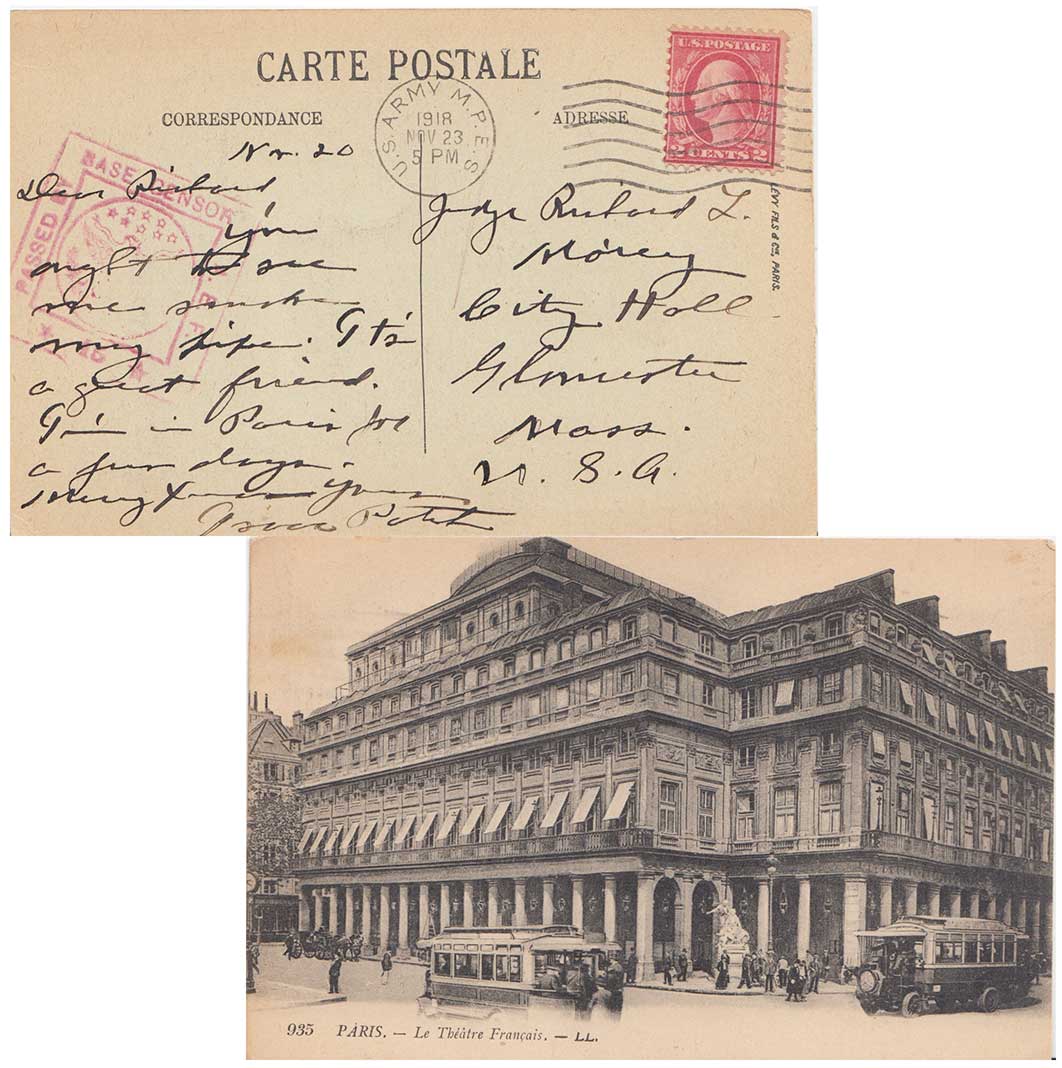 CARTE POSTALE
CORRESPONDANCE
ADRESSE
U.S. ARMY M.P.E.S
1918
NOV 23
5 PM
U.S. POSTAGE
2 CENTS 2
PASSED
BASE CENSOR
Nov. 20
Dear Richard
You
ought to see
me smoke
my pipe. It's
a great friend.
I'm in Paris for
a few days.
Merry Xmas
Judge Richard L.
Morey
City Hall
Gloucester
Mass.
U. S. A.
LÉVY FILS & Cie, PARIS.
935 PARIS. — Le Théâtre Français. — LL.